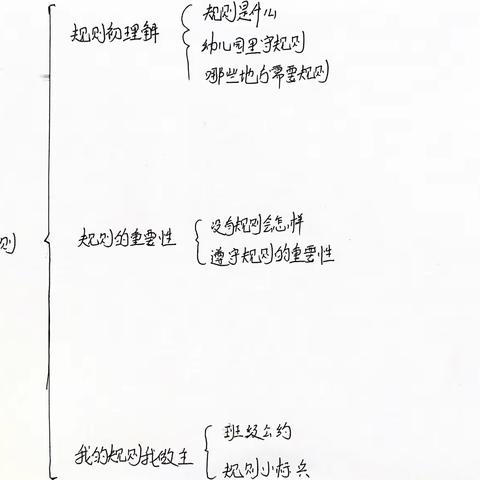 规则是什么
规则初理解
幼儿园里守规则
哪些地方需要规则
没有规则会怎样
规则的重要性
则
遵守规则的重要性
班级公约
我的规则我做主
规则小标兵